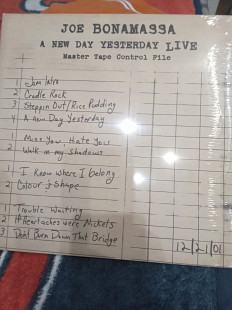 JOE BONAMASSA
A NEW DAY YESTERDAY LIVE
Master Tape Control File
1 Jam Intro
2 Cradle Rock
3 Steppin Out/Rice Pudding
4 A new Day Yesterday
1 Miss You, Hate You
2 Walk in my Shadows
1 I Know Where I belong
2 Colour & Shape
1 Trouble Waiting
2 If Heartaches were Nickels
3 Don't Burn Down That Bridge
12/21/01